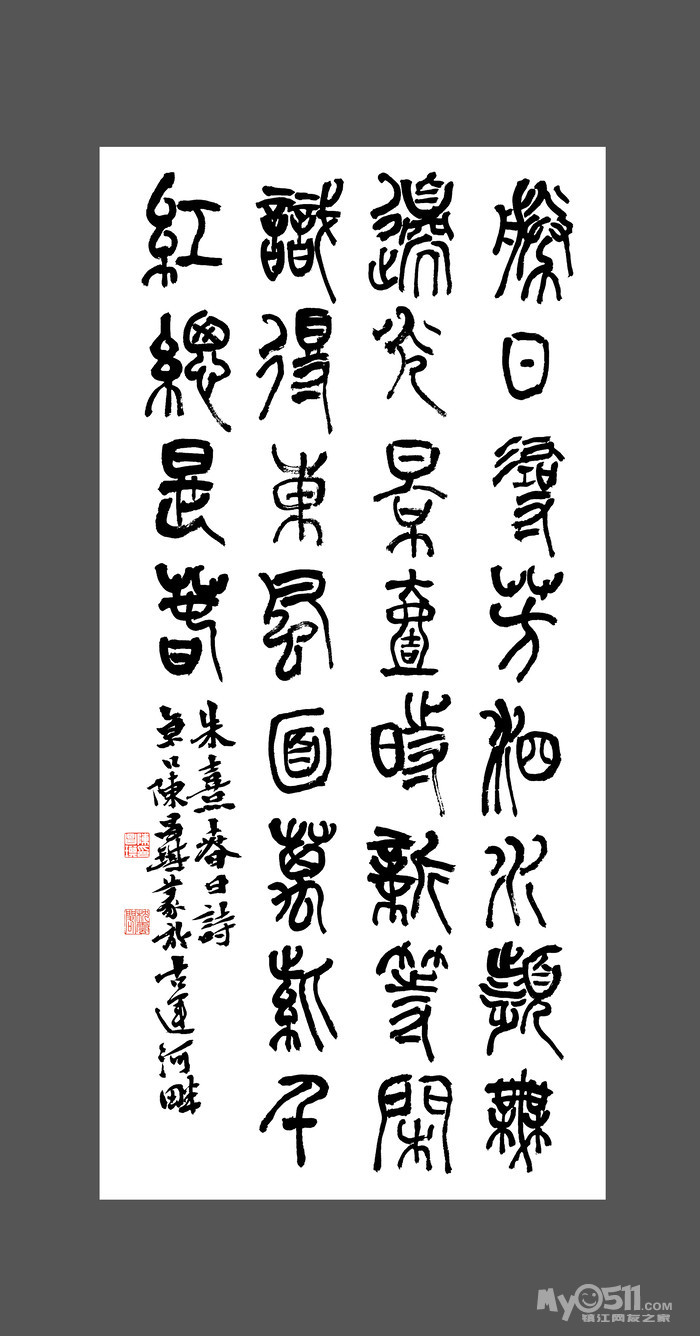 勝日尋芳泗水瀕無
邊光景壹時新等閑
識得東風面萬紫千
紅總是春
朱熹春日詩
京口陳篆於古運河畔
My0511.COM
镇江网友之家